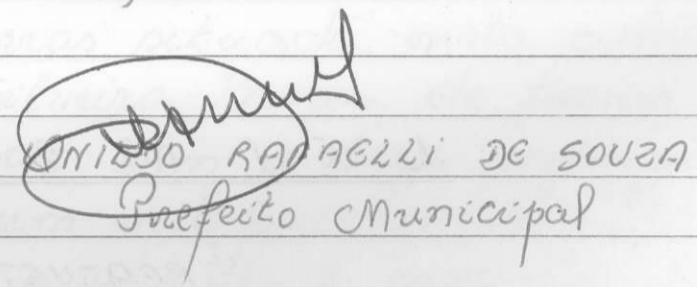 RAFAELLI DE SOUZA
Prefeito Municipal